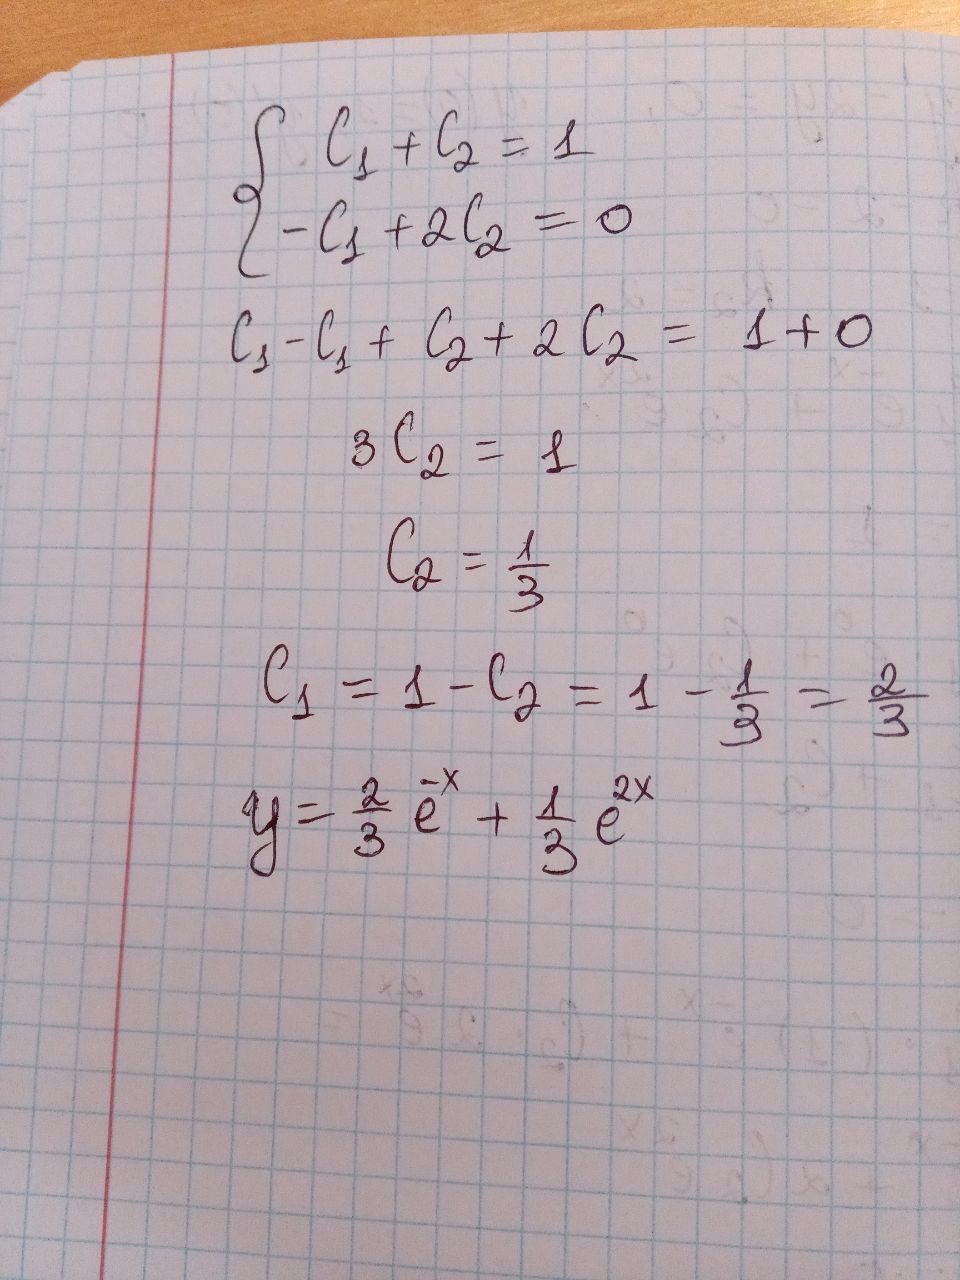 { C₁ + C₂ = 1
-C₁ + 2C₂ = 0
C₁ - C₁ + C₂ + 2C₂ = 1 + 0
3C₂ = 1
C₂ = 1/3
C₁ = 1 - C₂ = 1 - 1/3 = 2/3
y = 2/3 e^(-x) + 1/3 e^(2x)